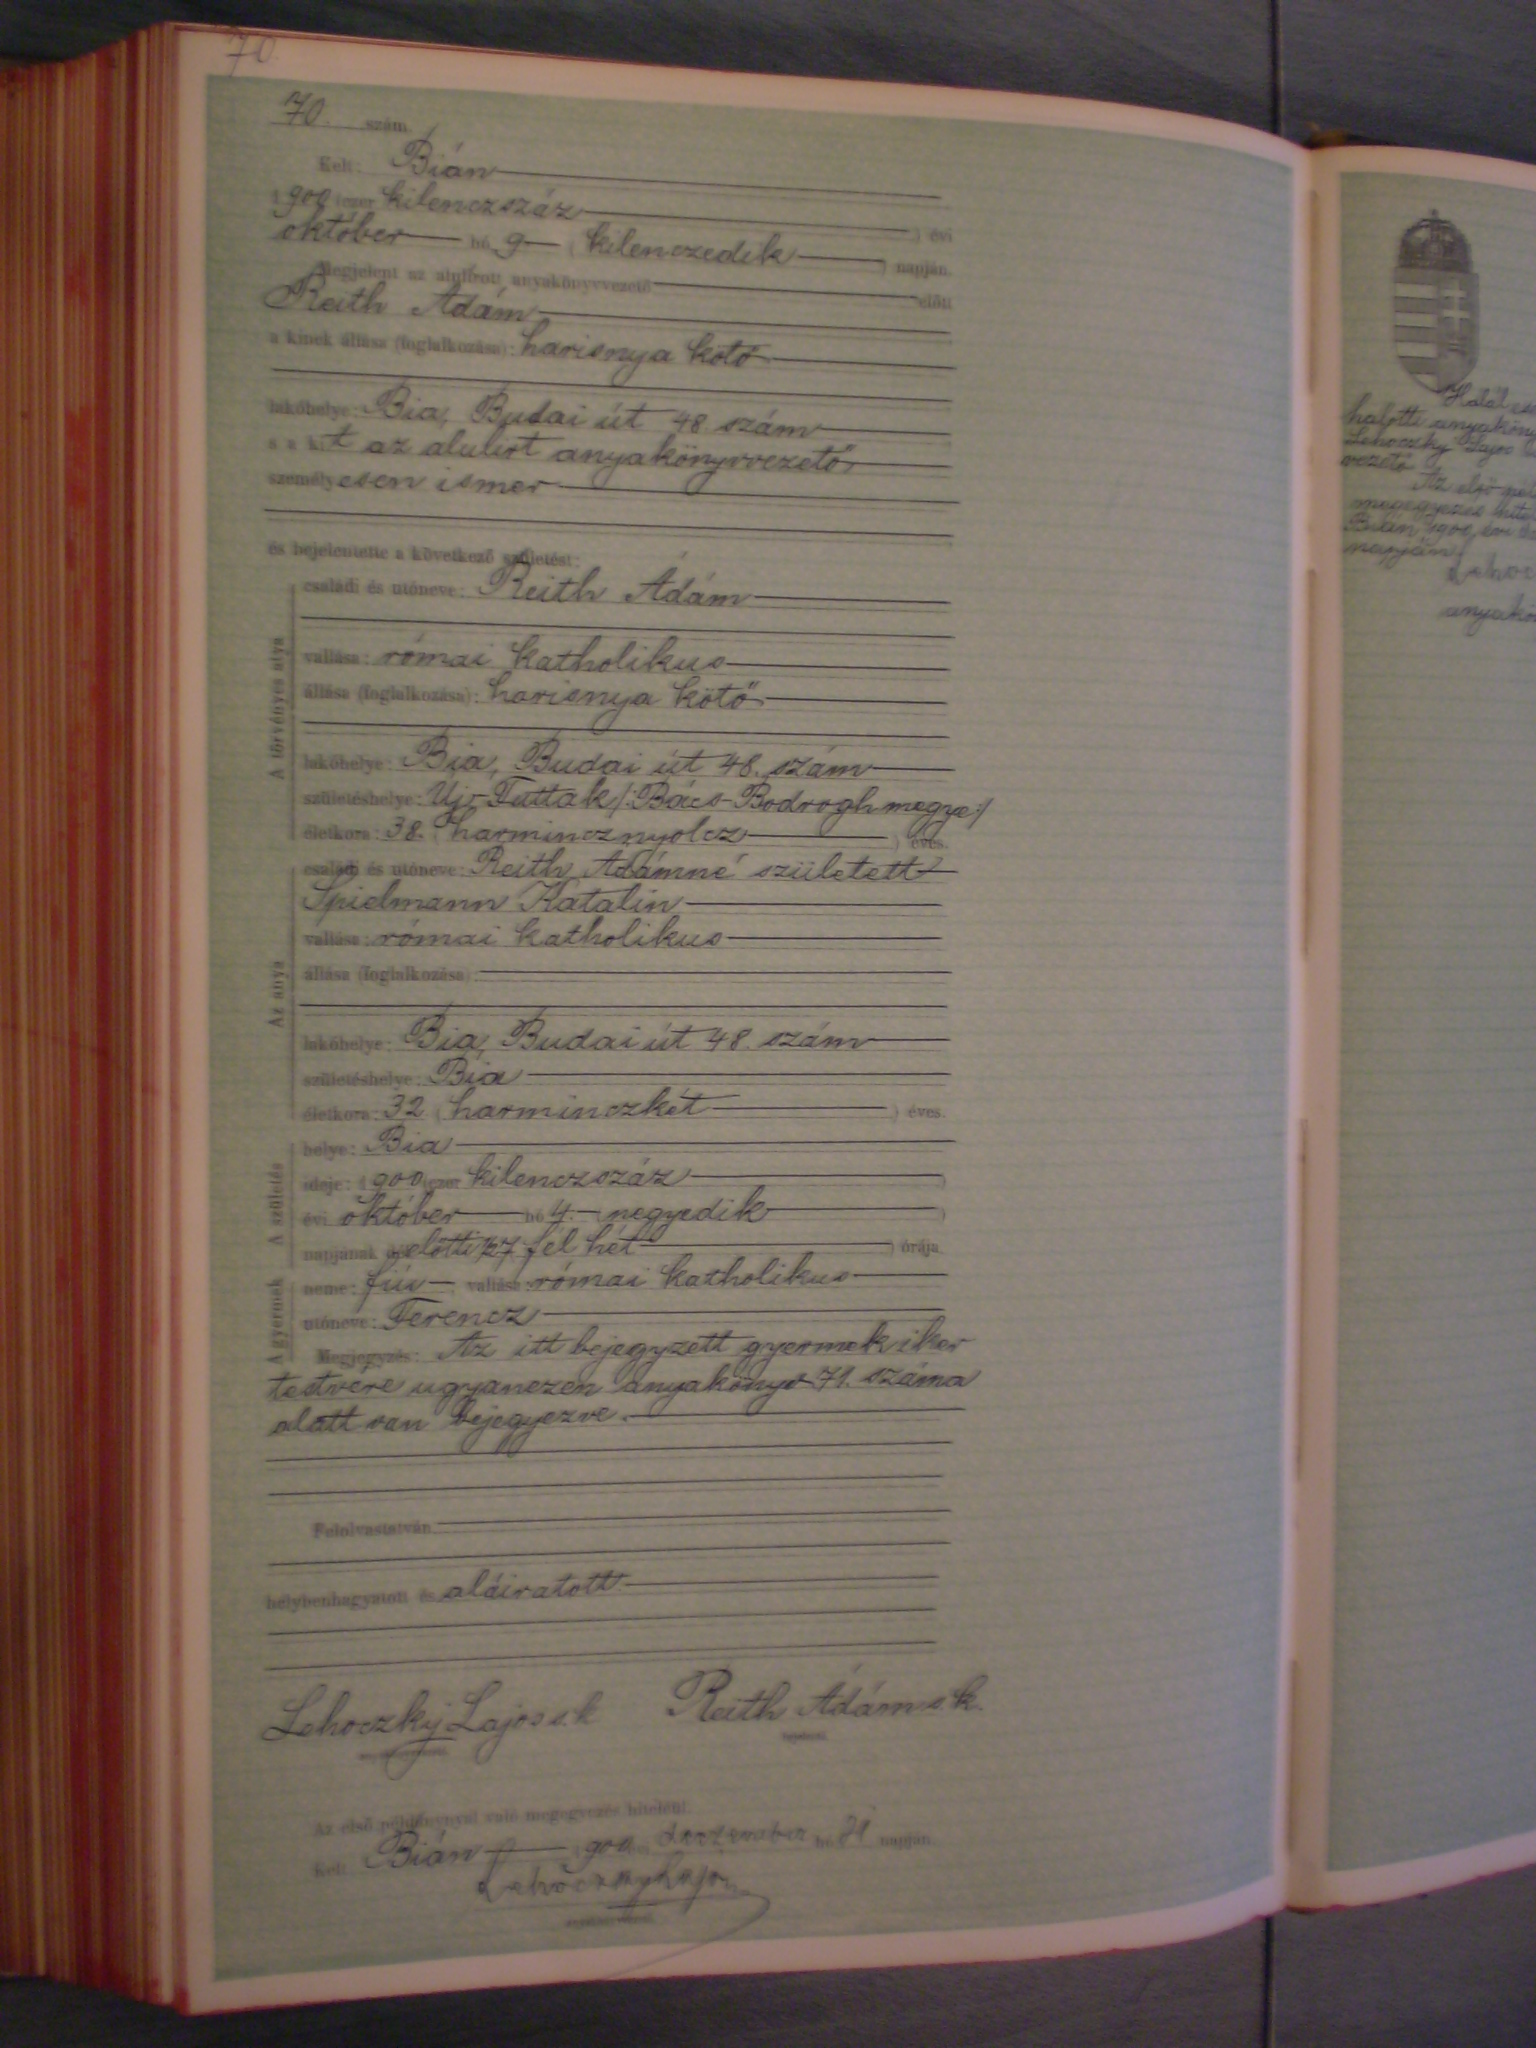 70
70. szám.
Kelt: Bián
1900 (ezer kilenczszáz ) évi
október hó 9 ( kilenczedik ) napján.
Megjelent az alulírott anyakönyvvezető előtt
Reith Ádám
a kinek állása (foglalkozása): harisnya kötő
lakóhelye: Bia, Budai út 48. szám
s a kit az alulirt anyakönyvvezető
személyesen ismer
és bejelentette a következő születést:
A törvényes atya
családi és utóneve: Reith Ádám
vallása: római katholikus
állása (foglalkozása): harisnya kötő
lakóhelye: Bia, Budai út 48. szám
születéshelye: Uj-Futtak /: Bács-Bodrogh megye :/
életkora: 38. ( harmincznyolcz ) éves.
Az anya
családi és utóneve: Reith Ádámné született
Spielmann Katalin
vallása: római katholikus
állása (foglalkozása):
lakóhelye: Bia, Budai út 48. szám
születéshelye: Bia
életkora: 32 ( harminczkét ) éves.
A születés
helye: Bia
ideje: 1900 (ezer kilenczszáz )
évi október hó 4. ( negyedik )
napjának délelőtti ½7 fél hét ) órája.
A gyermek
neme: fiú vallása: római katholikus
utóneve: Ferencz
Megjegyzés: Az itt bejegyzett gyermek iker
testvére ugyanezen anyakönyv 71. száma
alatt van bejegyezve.
Felolvastatván,
helybenhagyatott és aláiratott
Lehoczky Lajos s.k. Reith Ádám s.k.
bejelentő.
Az első példánynyal való megegyezés hiteléül.
Kelt Bián 1900 deczember hó 31 napján
Lehoczky Lajos
Halál es
halotti anyaköny
Lehoczky Lajos
vezető
Az első pél
megegyezés hite
Bián, 1900 évi
napján
Lehoc
anyakö